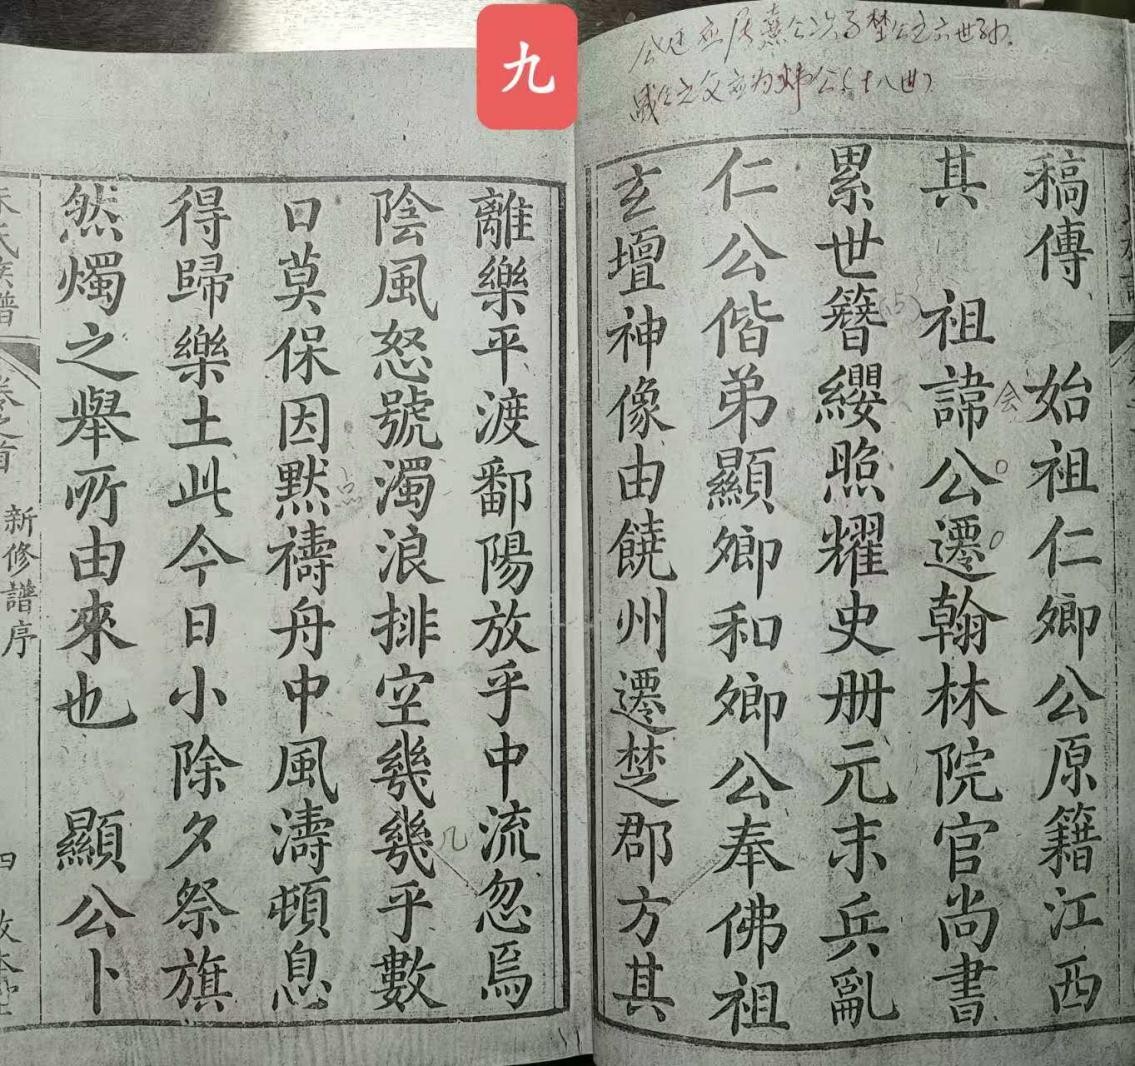 九
稿傳 始祖仁卿公原籍江西
其 祖諱公遷翰林院官尚書
累世簪纓照耀史册元末兵亂
仁公偕弟顯卿和卿公奉佛祖
玄壇神像由饒州遷楚郡方其
離樂平渡鄱陽放乎中流忽焉
陰風怒號濁浪排空幾幾乎數
日莫保因默禱舟中風濤頓息
得歸樂土此今日小除夕祭旗
然燭之舉所由來也 顯公卜
氏族譜 卷之首 新修譜序 四
会
点
几